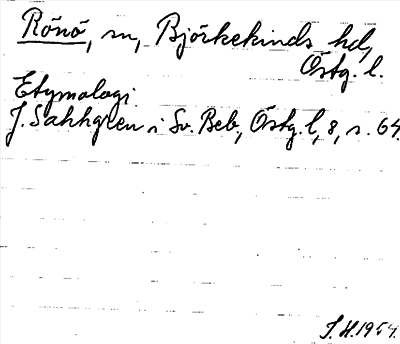 Rönö, sn, Björkekinds hd,
Östg. l.
Etymologi
J. Sahlgren i Sv. Beb., Östg. l, 8, s. 64.
S.H. 1954.